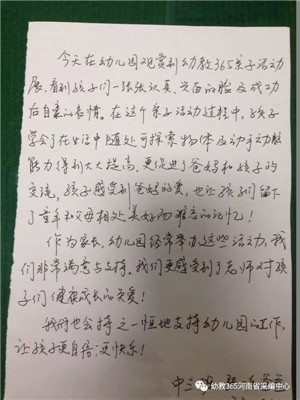 今天在幼儿园观赏到幼教365亲子活动
展，看到孩子们一张张认真、兴奋的脸及成功
后自豪的表情。在这个亲子活动过程中，孩子
学会了在生活中随处可探索物体及动手动脑
能力得到大大提高，更促进了爸妈和孩子的
交流，孩子感受到爸妈的爱，也让孩子们留下
了童年和父母相处美好而难忘的记忆！
作为家长，幼儿园经常举办这些活动，我
们非常满意与支持。我们更感受到了老师对孩
子们健康成长的关爱！
我们也会持之一恒地支持幼儿园的工作，
让孩子更自信、更快乐！
中三班
幼教365河南省采编中心